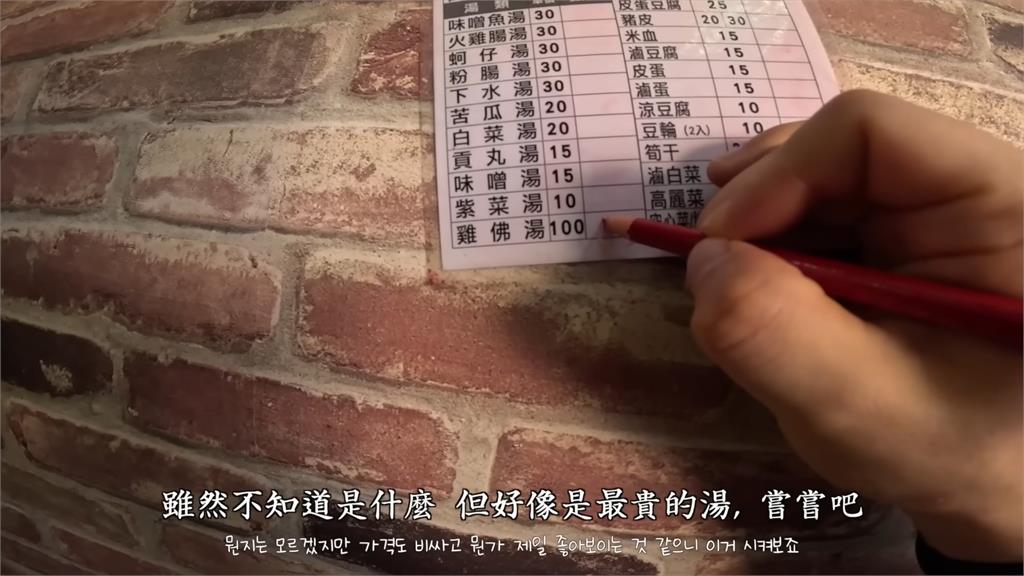 湯 類
味噌魚湯 30
火雞腸湯 30
蚵仔湯 30
粉腸湯 30
下水湯 30
苦瓜湯 20
白菜湯 20
貢丸湯 15
味噌湯 15
紫菜湯 10
雞佛湯 100
皮蛋豆腐 25
豬皮 20 30
米血 15
滷豆腐 15
皮蛋 15
滷蛋 15
涼豆腐 10
豆輪(2入) 10
筍干
滷白菜
高麗菜
雖然不知道是什麼 但好像是最貴的湯, 嘗嘗吧
뭔지는 모르겠지만 가격도 비싸고 뭔가 제일 좋아보이는 것 같으니 이거 시켜보죠